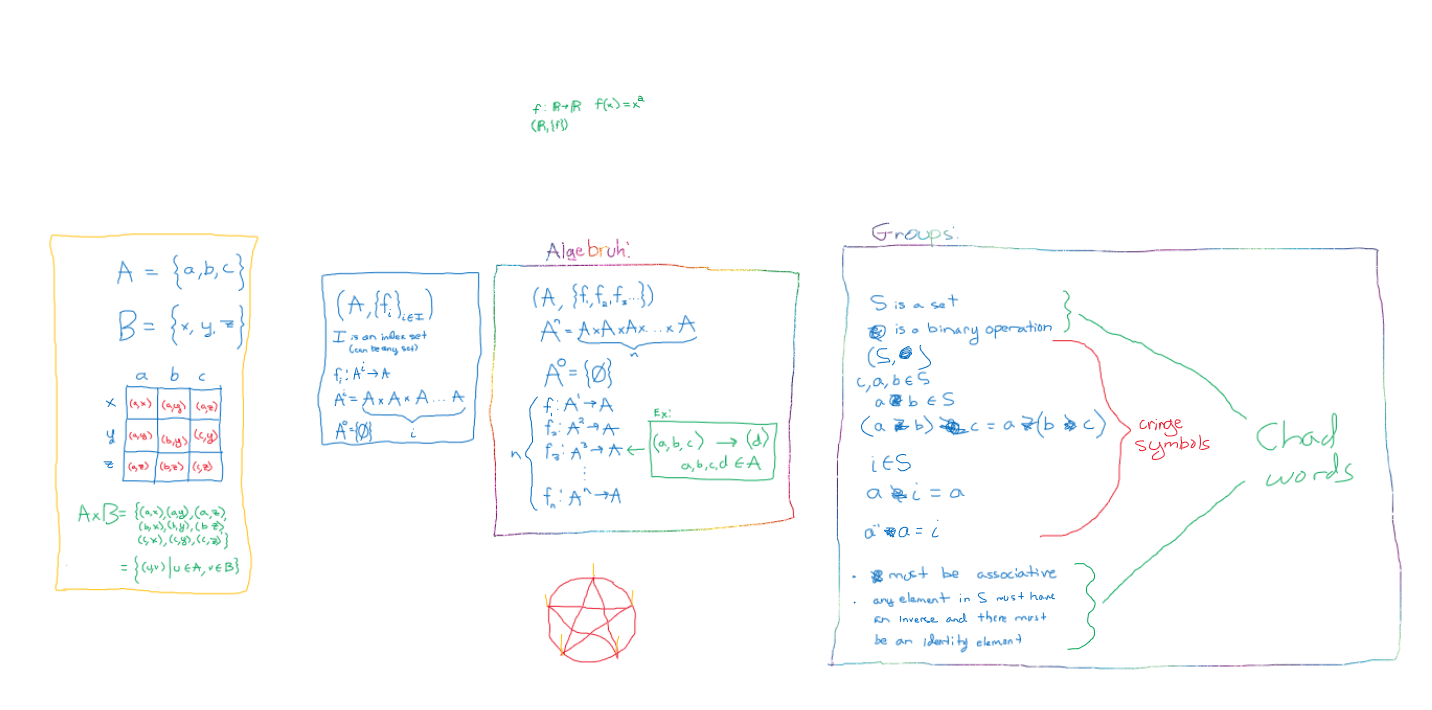 f: ℝ→ℝ f(x)=x²
(ℝ,{f})
A = {a,b,c}
B = {x,y,z}
a b c
x (a,x) (a,y) (a,z)
y (a,y) (b,y) (c,y)
z (a,z) (b,z) (c,z)
A×B= {(a,x),(a,y),(a,z),
(b,x),(b,y),(b z),
(c,x),(c,y),(c,z)}
= {(u,v)|u∈A,v∈B}
(A,{fᵢ}i∈I)
I is an index set
(can be any set)
fᵢ: Aⁱ→A
Aⁱ= A×A×A...A
i
A⁰={∅}
Algebruh:
(A, {f₁,f₂,f₃...})
Aⁿ= A×A×A×...×A
n
A⁰={∅}
n
f₁: A¹→A
f₂: A²→A
f₃: A³→A ←
⋮
fₙ: Aⁿ→A
Ex:
(a,b,c) → (d)
a,b,c,d ∈ A
Groups:
S is a set
is a binary operation
(S, )
c,a,b ∈ S
a b ∈ S
(a b) c = a (b c)
i∈S
a i = a
a⁻¹ a = i
· must be associative
· any element in S must have
an inverse and there must
be an identity element
cringe
symbols
Chad
words